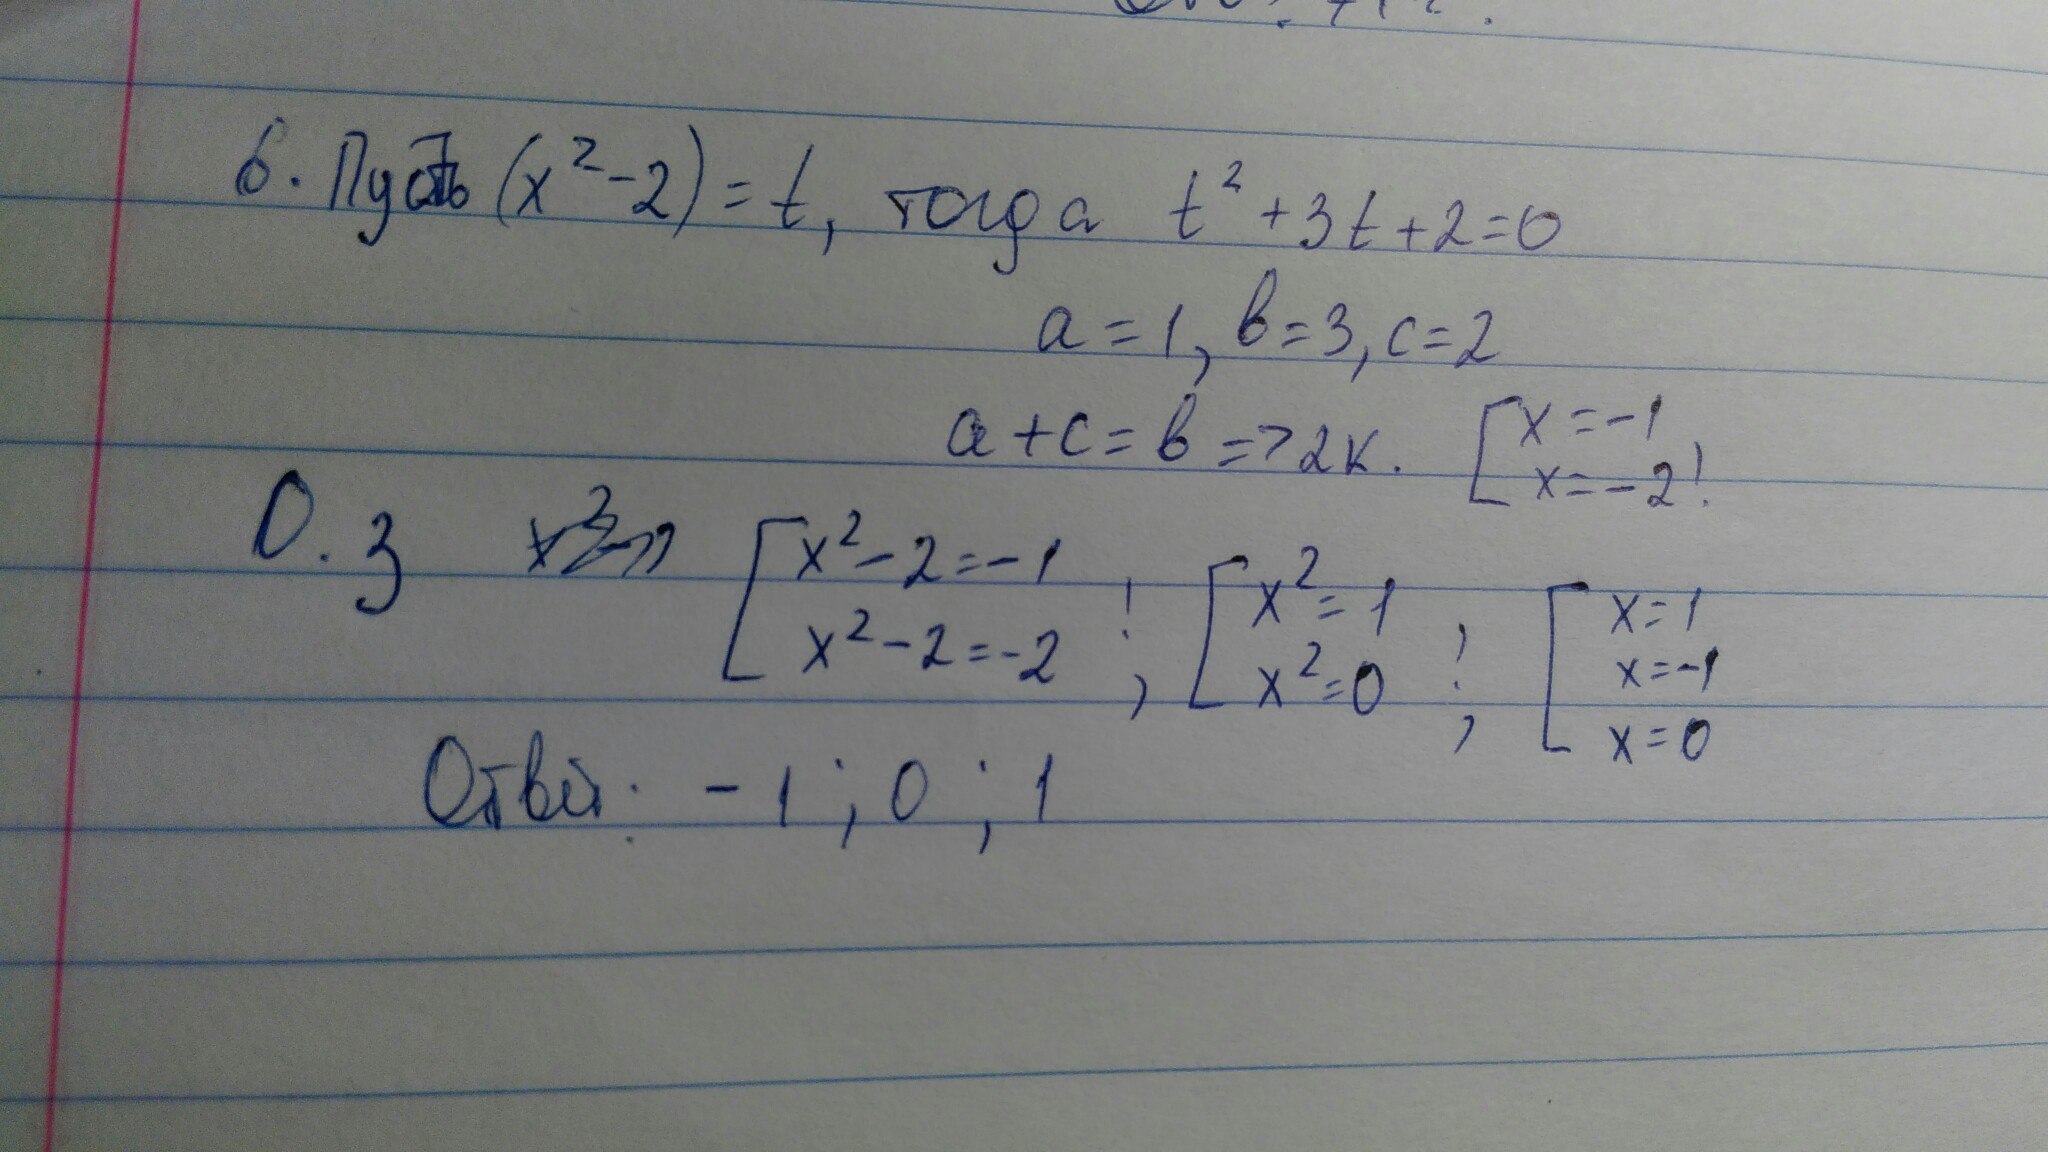 6. Пусть (x² - 2) = t, тогда t² + 3t + 2 = 0
a = 1, в = 3, c = 2
a + c = в => 2к. [ x = -1
x = -2 !
О. з [ x² - 2 = -1 ! [ x² = 1 ! [ x = 1
x² - 2 = -2 , x² = 0 , x = -1
x = 0
Ответ: -1 ; 0 ; 1